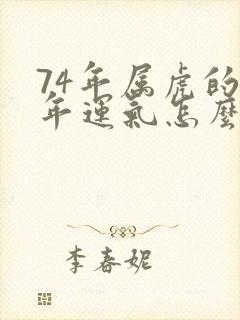 74年属虎的
年運氣怎麼
李春妮